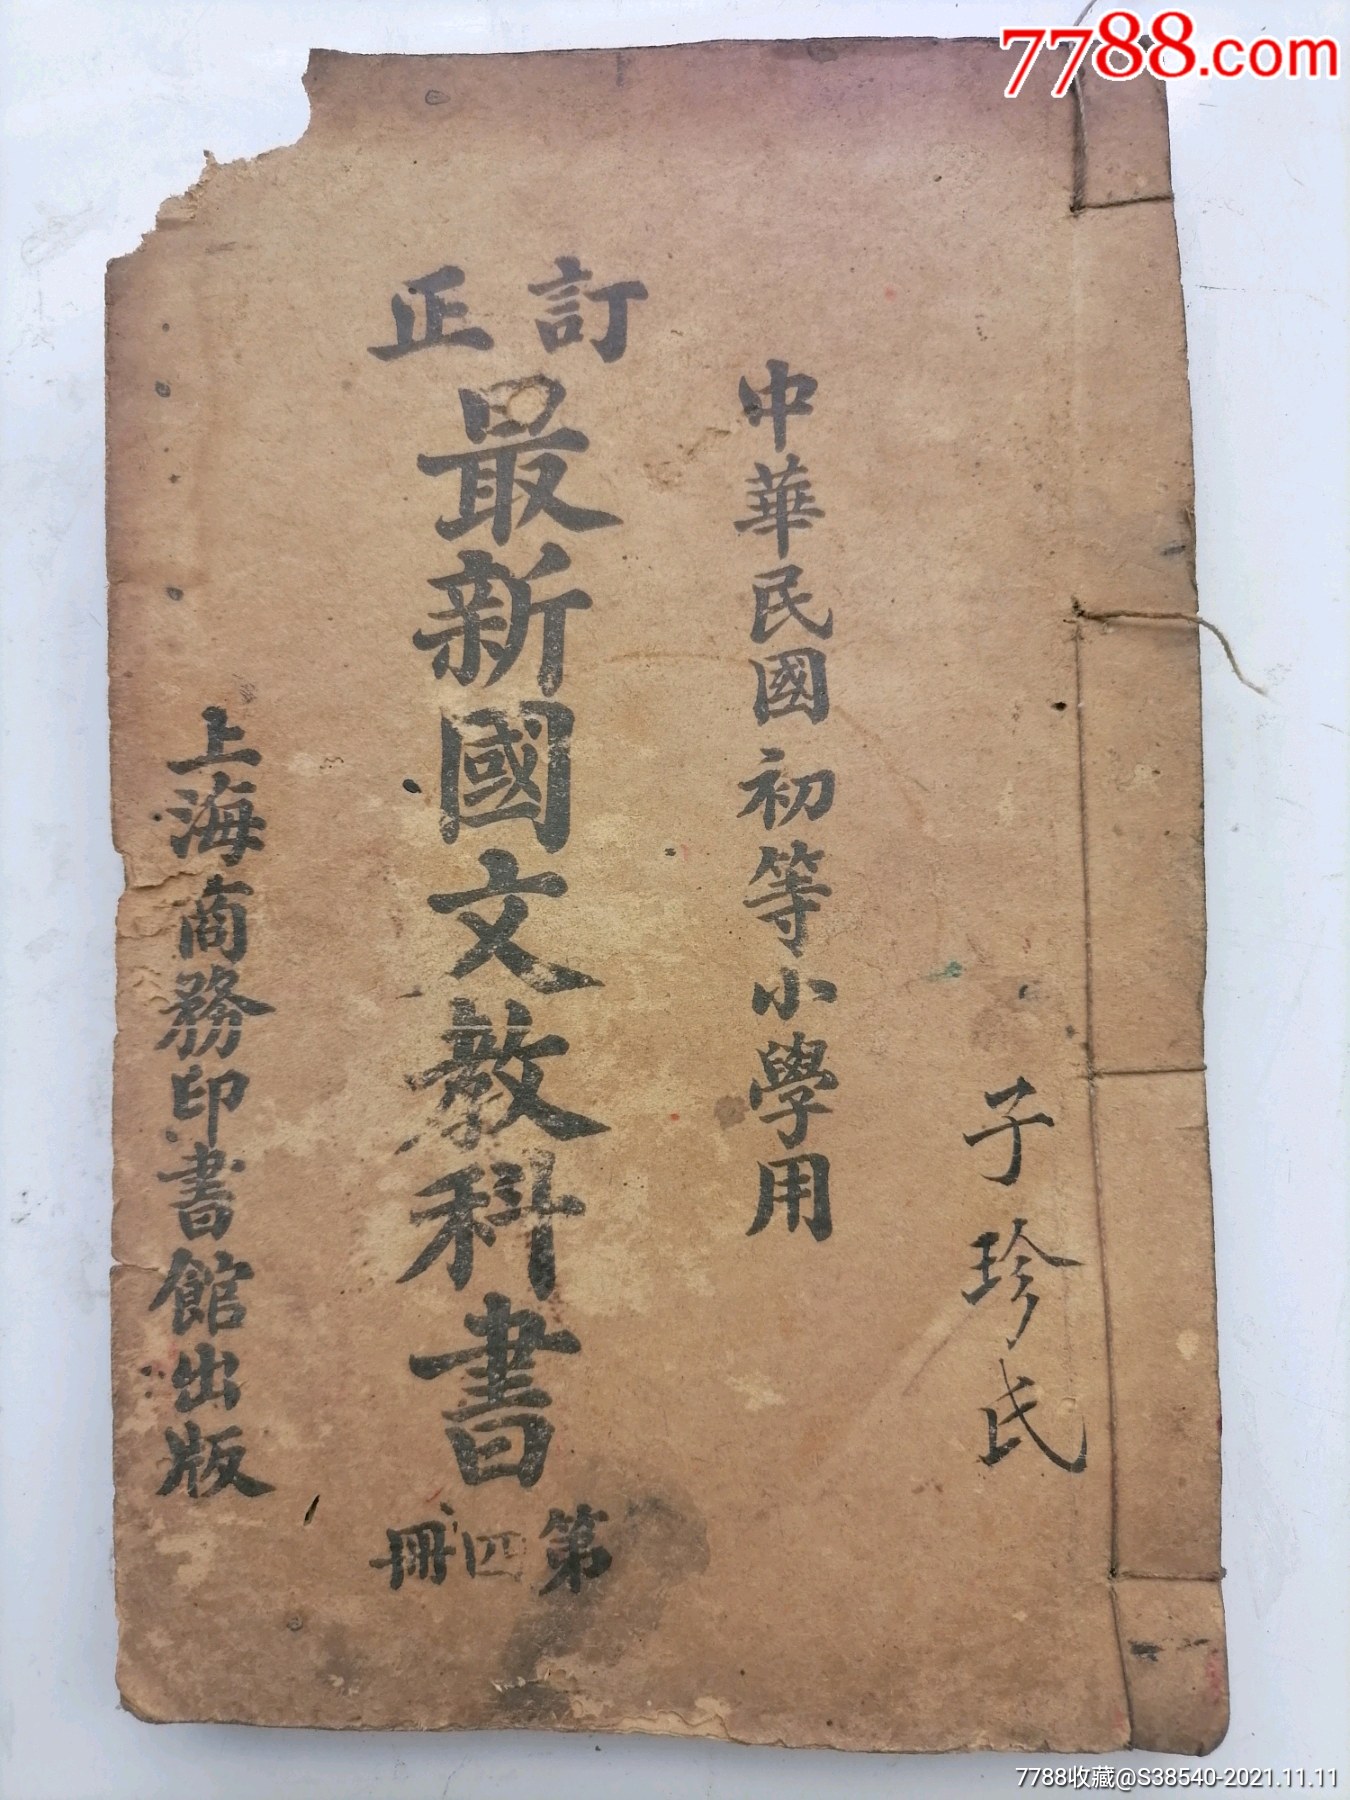 7788.com
子珍氏
中華民國初等小學用
訂正
最新國文教科書
第四冊
上海商務印書館出版
7788收藏@S38540-2021.11.11